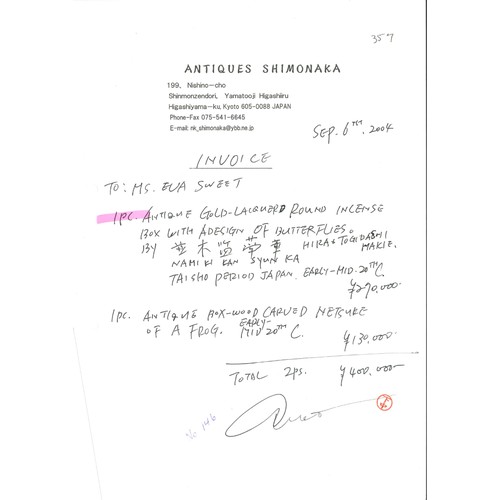 357
ANTIQUES SHIMONAKA
199, Nishino-cho
Shinmonzendori, Yamatooji Higashiiru
Higashiyama-ku, Kyoto 605-0088 JAPAN
Phone-Fax 075-541-6645
E-mail: nk_shimonaka@ybb.ne.jp
SEP. 6TH, 2004
INVOICE
TO: MS. EVA SWEET
1PC. ANTIQUE GOLD-LACQUERD ROUND INCENSE
BOX WITH A DESIGN OF BUTTERFLIES.
BY 並木 HIRA & TOGIDASHI MAKIE.
NAMIKI KAN SYUNKA
TAISHO PERIOD JAPAN. EARLY-MID.20TH C.
¥270.000-
1PC. ANTIQUE BOX-WOOD CARVED NETSUKE
OF A FROG. EARLY-MID 20TH C.
¥130.000-
TOTAL 2PS. ¥400.000-
No 146